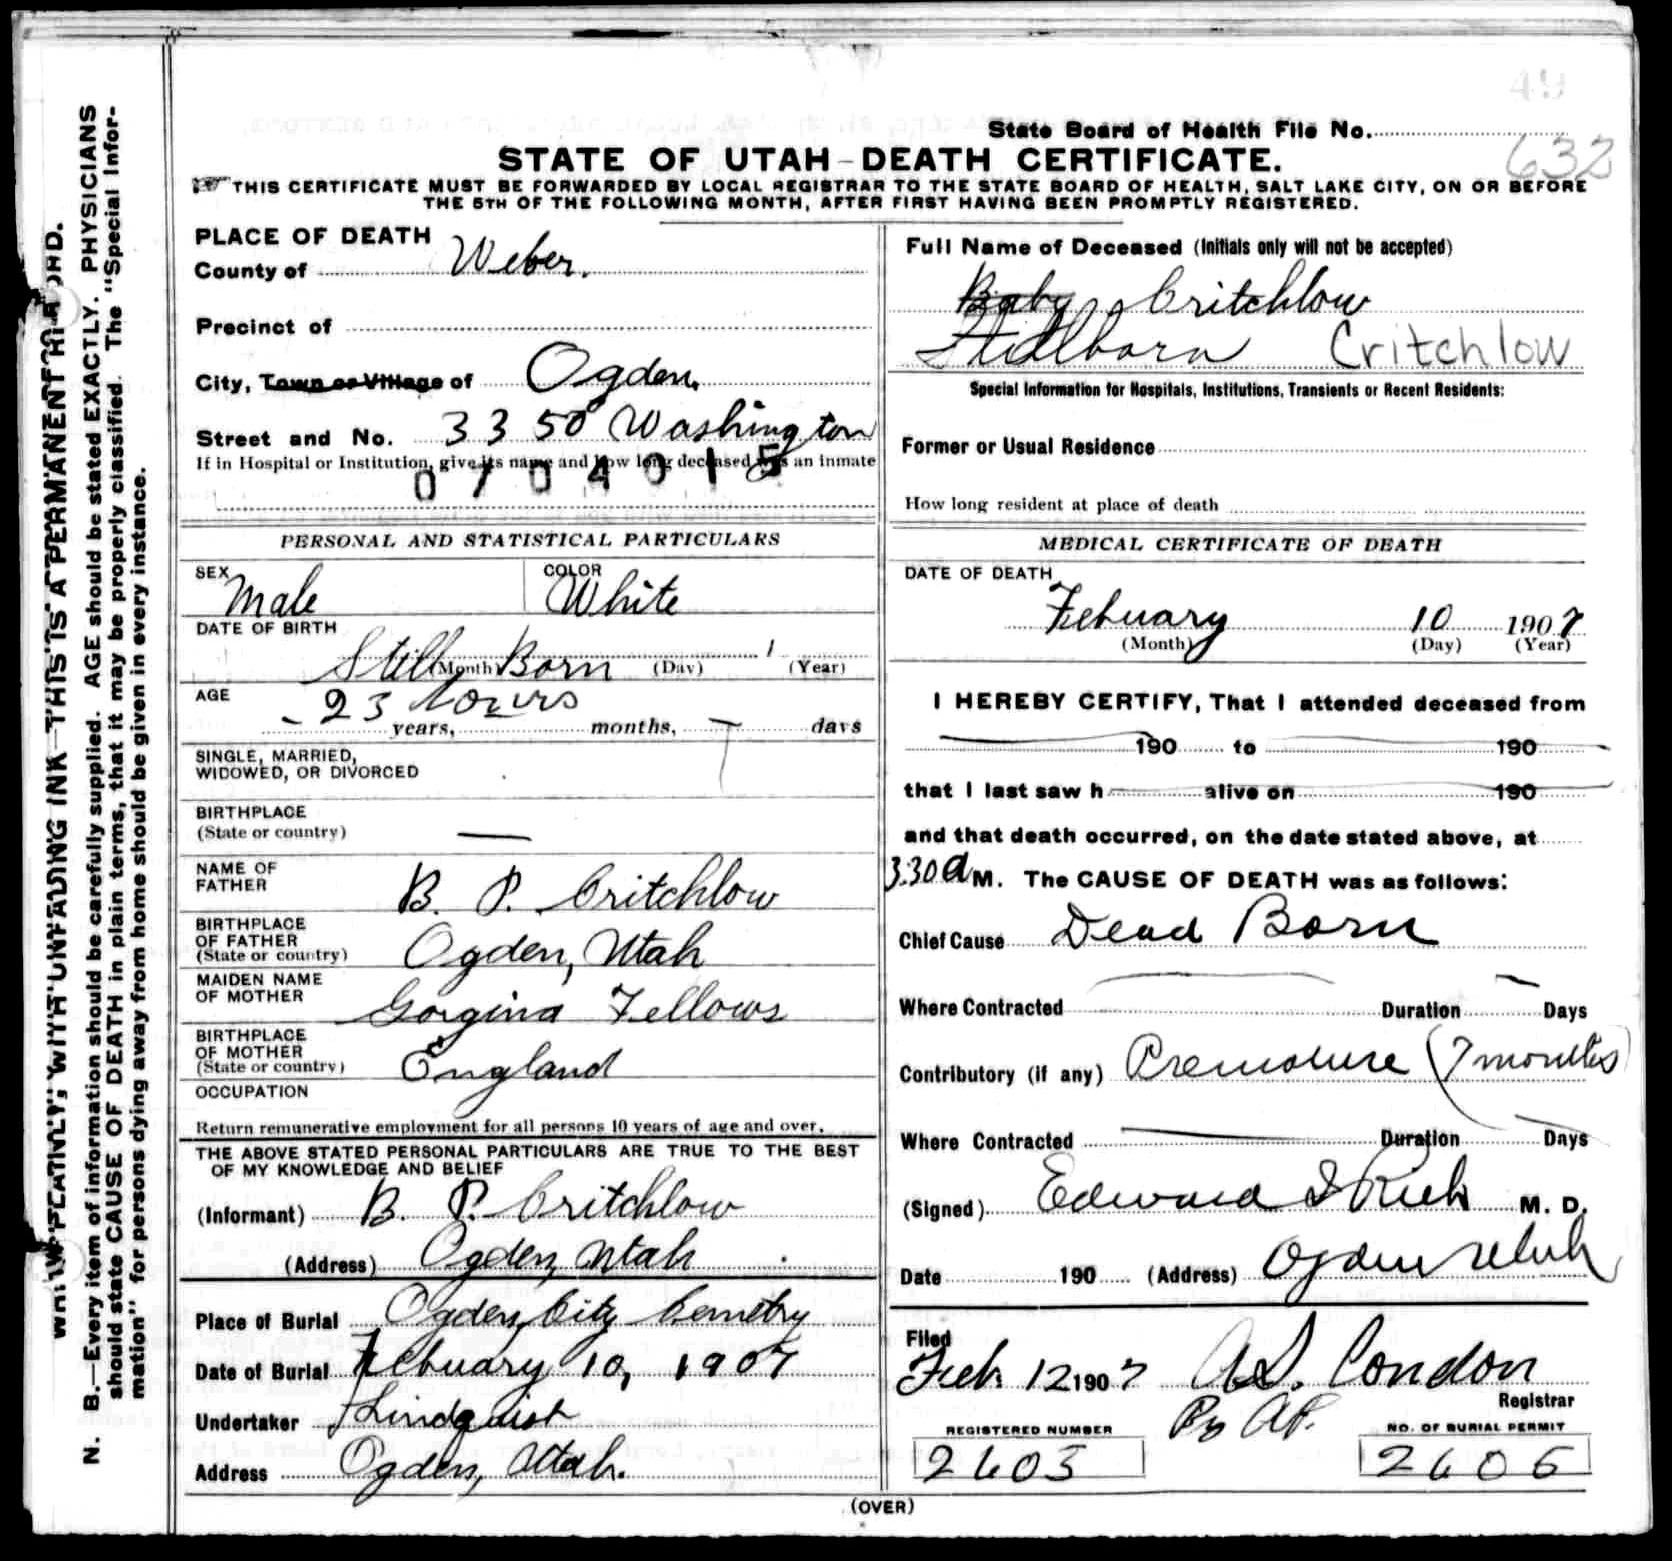 49
State Board of Health File No.
632
STATE OF UTAH-DEATH CERTIFICATE.
THIS CERTIFICATE MUST BE FORWARDED BY LOCAL REGISTRAR TO THE STATE BOARD OF HEALTH, SALT LAKE CITY, ON OR BEFORE
THE 5TH OF THE FOLLOWING MONTH, AFTER FIRST HAVING BEEN PROMPTLY REGISTERED.
WRITE PLAINLY, WITH UNFADING INK—THIS IS A PERMANENT RECORD.
N. B.—Every item of information should be carefully supplied. AGE should be stated EXACTLY. PHYSICIANS
should state CAUSE OF DEATH in plain terms, that it may be properly classified. The "Special Infor-
mation" for persons dying away from home should be given in every instance.
PLACE OF DEATH
County of Weber.
Precinct of
City, Town or Village of Ogden.
Street and No. 3350 Washington
If in Hospital or Institution, give its name and how long deceased was an inmate
0704015
PERSONAL AND STATISTICAL PARTICULARS
SEX Male COLOR White
DATE OF BIRTH
Still Born 1
(Month) (Day) (Year)
AGE
- 23 hours
years, months, days
SINGLE, MARRIED,
WIDOWED, OR DIVORCED
BIRTHPLACE
(State or country) —
NAME OF
FATHER B. P. Critchlow
BIRTHPLACE
OF FATHER
(State or country) Ogden, Utah
MAIDEN NAME
OF MOTHER Gorgina Fellows
BIRTHPLACE
OF MOTHER
(State or country) England
OCCUPATION
Return remunerative employment for all persons 10 years of age and over.
THE ABOVE STATED PERSONAL PARTICULARS ARE TRUE TO THE BEST
OF MY KNOWLEDGE AND BELIEF
(Informant) B. P. Critchlow
(Address) Ogden, Utah
Place of Burial Ogden City Cemetry
Date of Burial Febuary 10, 1907
Undertaker Lindquist
Address Ogden, Utah.
Full Name of Deceased (Initials only will not be accepted)
Baby Critchlow
Stillborn Critchlow
Special Information for Hospitals, Institutions, Transients or Recent Residents:
Former or Usual Residence
How long resident at place of death
MEDICAL CERTIFICATE OF DEATH
DATE OF DEATH
Febuary 10 1907
(Month) (Day) (Year)
I HEREBY CERTIFY, That I attended deceased from
190 to 190
that I last saw h alive on 190
and that death occurred, on the date stated above, at
3.30 a M. The CAUSE OF DEATH was as follows:
Chief Cause Dead Born
Where Contracted Duration Days
Contributory (if any) Premature (7 months)
Where Contracted Duration Days
(Signed) Edward I Rich M. D.
Date 190 (Address) Ogden Utah
Filed
Feb. 12 1907 A.S. Condon
Registrar
By AP.
REGISTERED NUMBER NO. OF BURIAL PERMIT
2603 2606
(OVER)